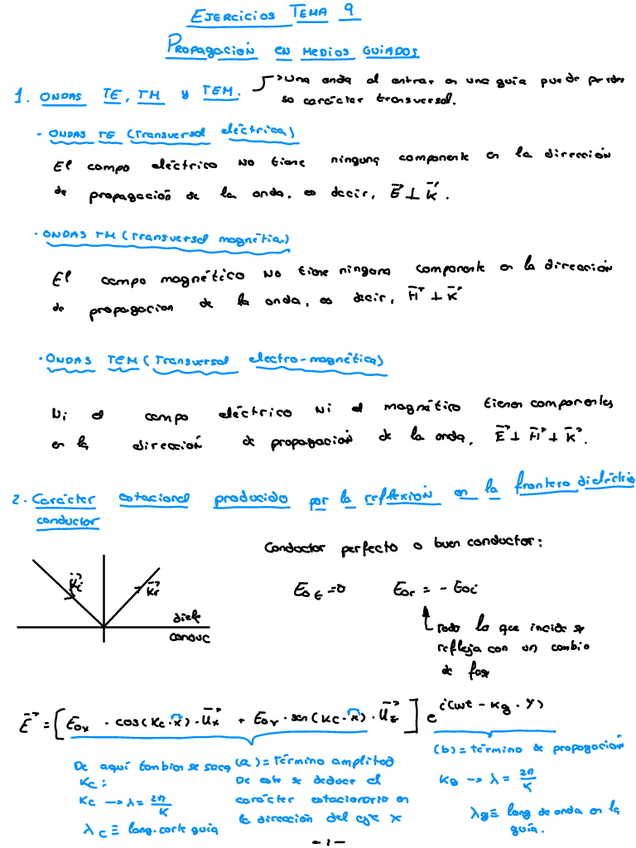 EJERCICIOS TEMA 9
PROPAGACIÓN EN MEDIOS GUIADOS
1. ONDAS TE, TM y TEM. → Una onda al entrar en una guía puede perder
su carácter transversal.
· ONDAS TE (Transversal eléctrica)
El campo eléctrico NO tiene ninguna componente en la dirección
de propagación de la onda, es decir, E⃗ ⊥ K⃗.
· ONDAS TM (Transversal magnética)
El campo magnético NO tiene ninguna componente en la dirección
de propagacion de la onda, es decir, H⃗ ⊥ K⃗
· ONDAS TEM (Transversal electro-magnética)
Ni el campo eléctrico Ni el magnético tienen componentes
en la dirección de propagación de la onda, E⃗ ⊥ H⃗ ⊥ K⃗.
2. Carácter estacional producido por la reflexión en la frontera dieléctrico
conductor
Conductor perfecto o buen conductor:
K⃗i K⃗r
E₀t = 0 E₀r = - E₀i
diele
conduc
Todo lo que incide se
refleja con un cambio
de fase
E⃗ = [E₀x · cos(Kc·x)·U⃗x + E₀y · sen(Kc·x)·U⃗z] e^i(ωt - Kg·y)
De aquí tambien se saca
Kc:
Kc → λ = 2π/K
λc ≡ long. corte guía
(a) = término amplitud
De este se deduce el
carácter estacionario en
la dirección del eje x
(b) = término de propagación
Kg → λ = 2π/K
λg ≡ long de onda en la
guía.
-1-